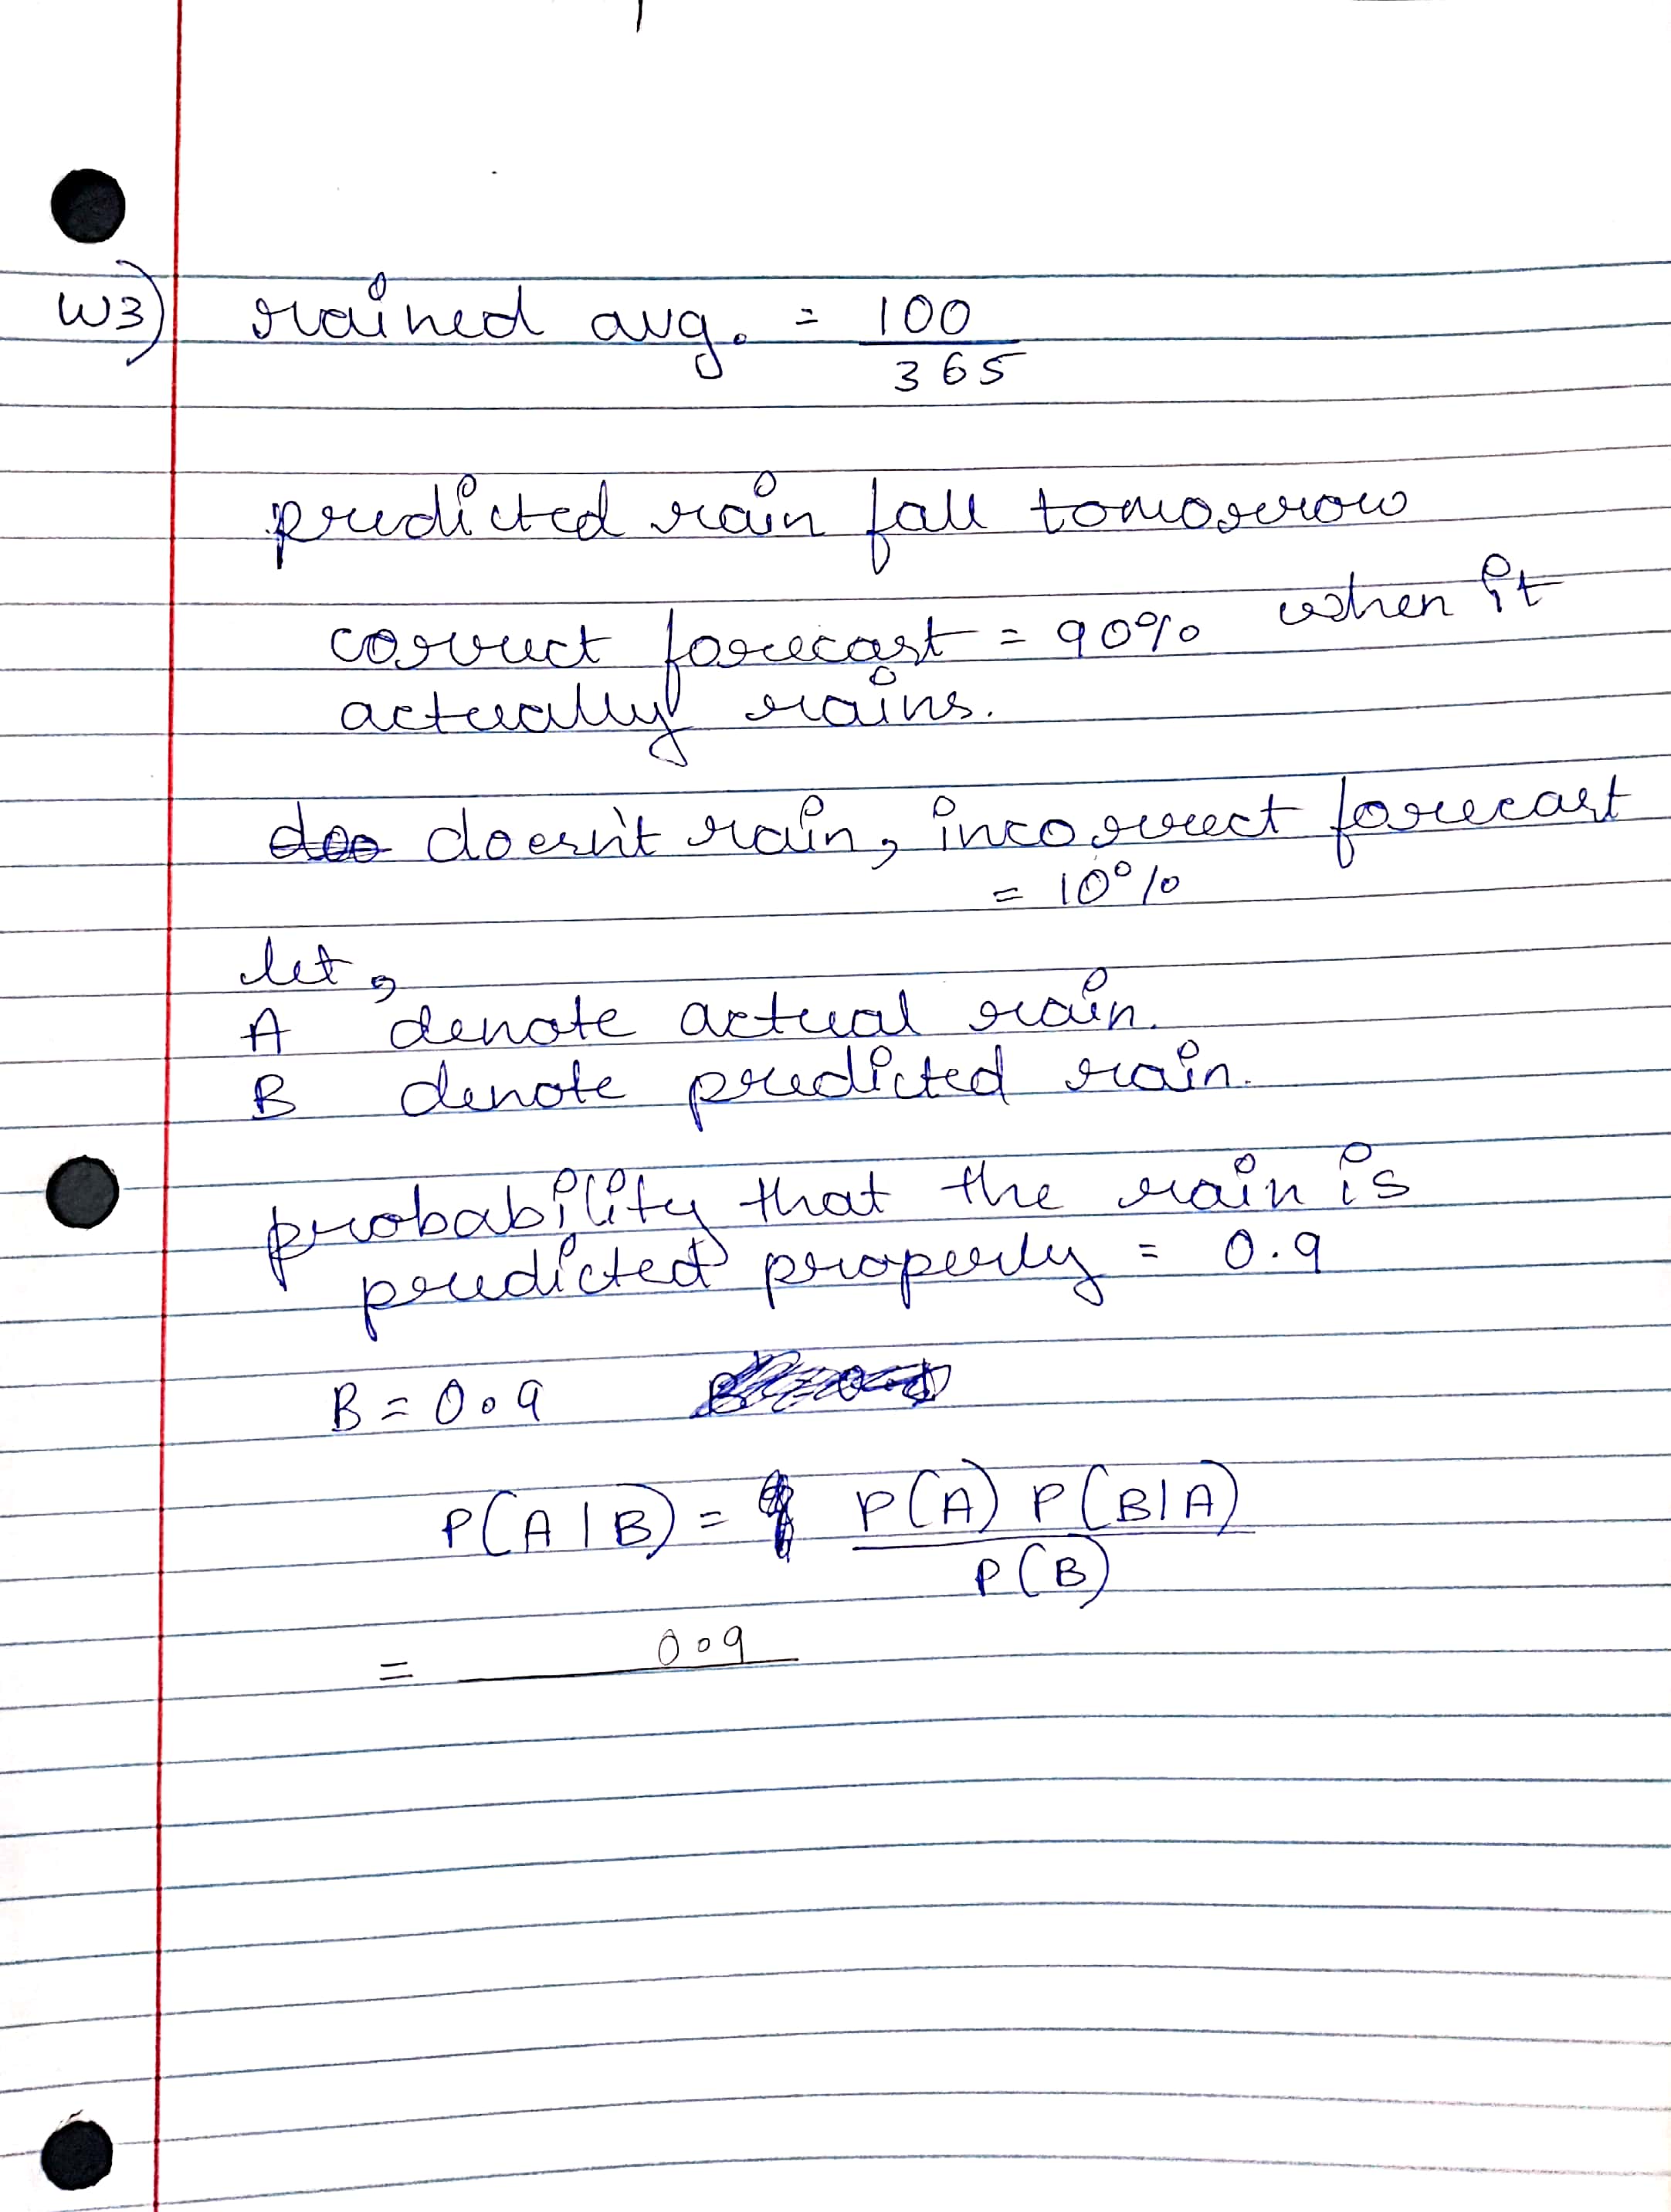 W3) rained avg. = 100
365
predicted rain fall tomorrow
correct forecast = 90% when it
actually rains.
doesn't rain, incorrect forecast
= 10%
let,
A denote actual rain.
B denote predicted rain.
probability that the rain is
predicted properly = 0.9
B = 0.9
P(A|B) = P(A) P(B|A)
P(B)
= 0.9